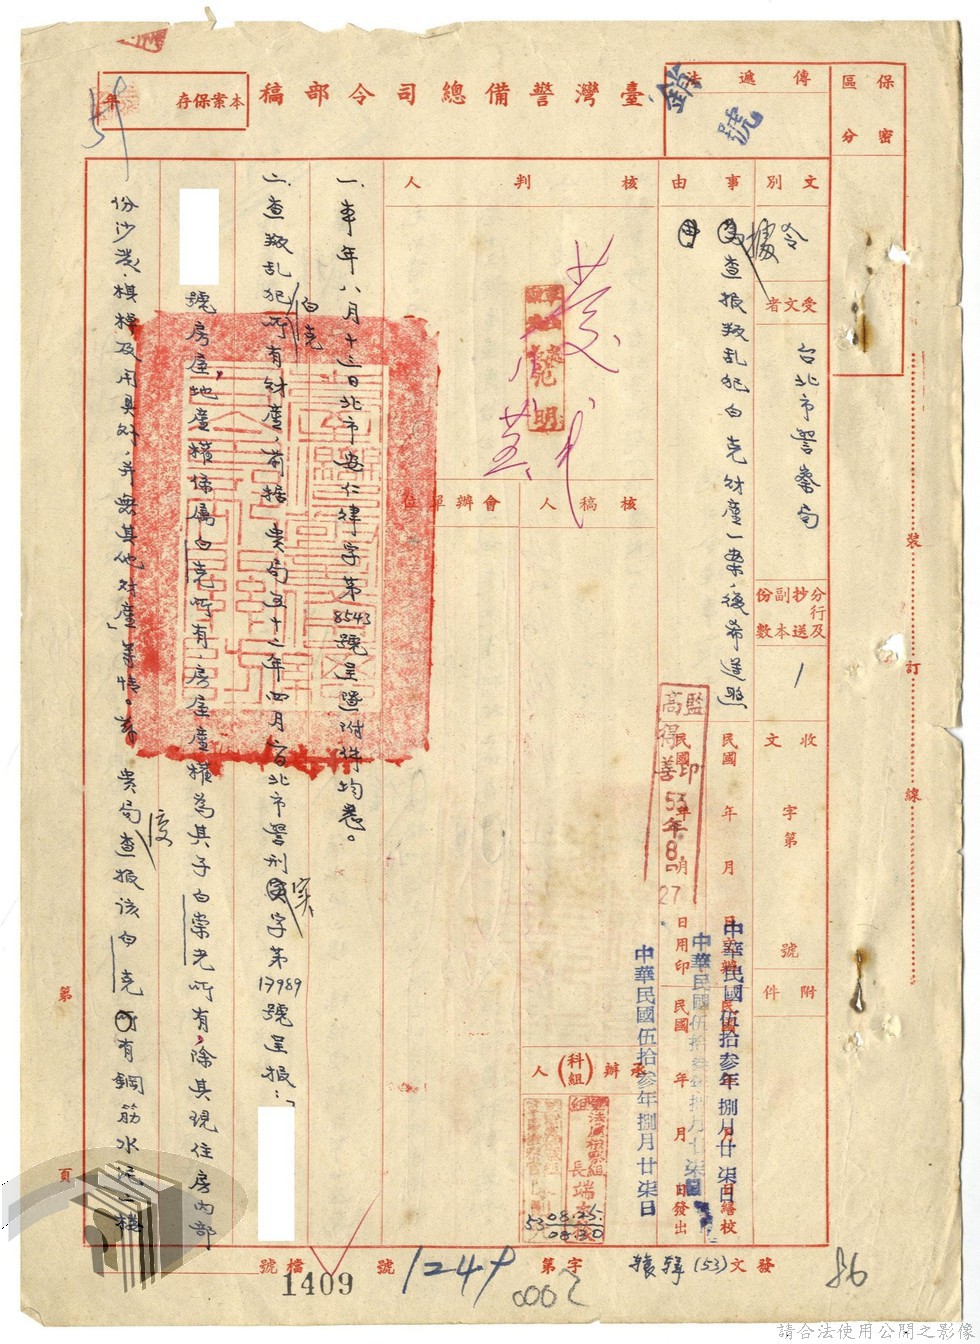 保密
區分
傳遞法
臺灣警備總司令部稿
本案保存 年
文別
令
受文者
台北市警察局
分行及抄送副本份數
1
收文 字第 號
附件
事由
為據查报叛乱犯白克財產一案,復希遵照
民國 年 月 日交辦
民國 年 月 日繕校
民國 年 月 日用印
民國 年 月 日發出
中華民國伍拾叁年捌月廿柒日
中華民國伍拾叁年捌月廿柒日
中華民國伍拾叁年捌月廿柒日
監印
高得善
53年8月27
核判人
核稿人
會辦單位
承辦(科組)人
53 08.25.
0830
一、本年八月十三日北市安仁律字第8543號呈暨附件均悉。
二、查叛乱犯白克所有財產,前据 貴局五十二年四月 日北市警刑实字第17989號呈报:「
號房屋,地產權係屬白克所有,房屋產權為其子白崇光所有,除其現住房內部
份沙发、棋桿及用具外,并無其他財產」等情。茲 貴局復查报該白克 有鋼筋水泥二樓
第 頁
裝 訂 線
發文(53) 字第 1249 號
檔號
1409
0002
86
請合法使用公開之影像